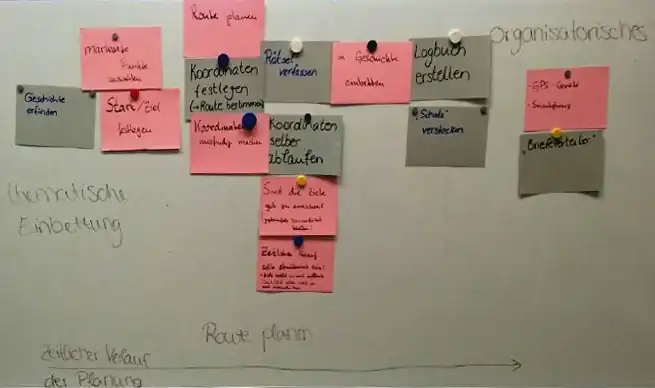 Route planen
organisatorisches
markante
Punkte
auswählen
Koordinaten
festlegen
(→ Route bestimmen)
Rätsel
verfassen
Geschichte
einbetten
Logbuch
erstellen
- GPS-Geräte
- Smartphones
Geschichte
erfinden
Start/Ziel
festlegen
Koordinaten
ausfindig machen
Koordinaten
selber
ablaufen
"Schatz"
verstecken
"Briefersteller"
Sind die Ziele
gut zu erreichen?
Zeitlicher
thematische
Einbettung
Route planen
zeitlicher Verlauf
der Planung